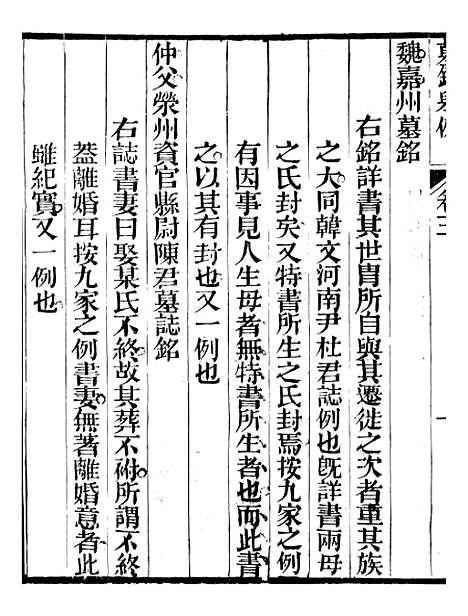 卷三
魏嘉州墓銘
右銘詳書其世胄所自與其遷徙之次者重其族
之大同韓文河南尹杜君誌例也旣詳書兩母
之氏封矣又特書所生之氏封焉按九家之例
有因事見人生母者無特書所生者也而此書
之以其有封也又一例也
仲父滎州資官縣尉陳君墓誌銘
右誌書妻曰娶某氏不終故其葬不祔所謂不終
葢離婚耳按九家之例書妻無著離婚意者此
雖紀實又一例也